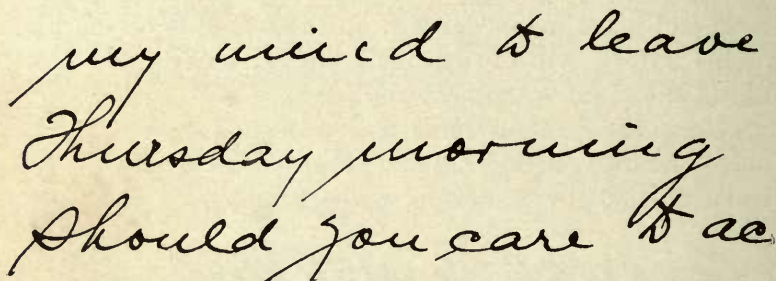 my mind to leave
Thursday morning
should you care to ac